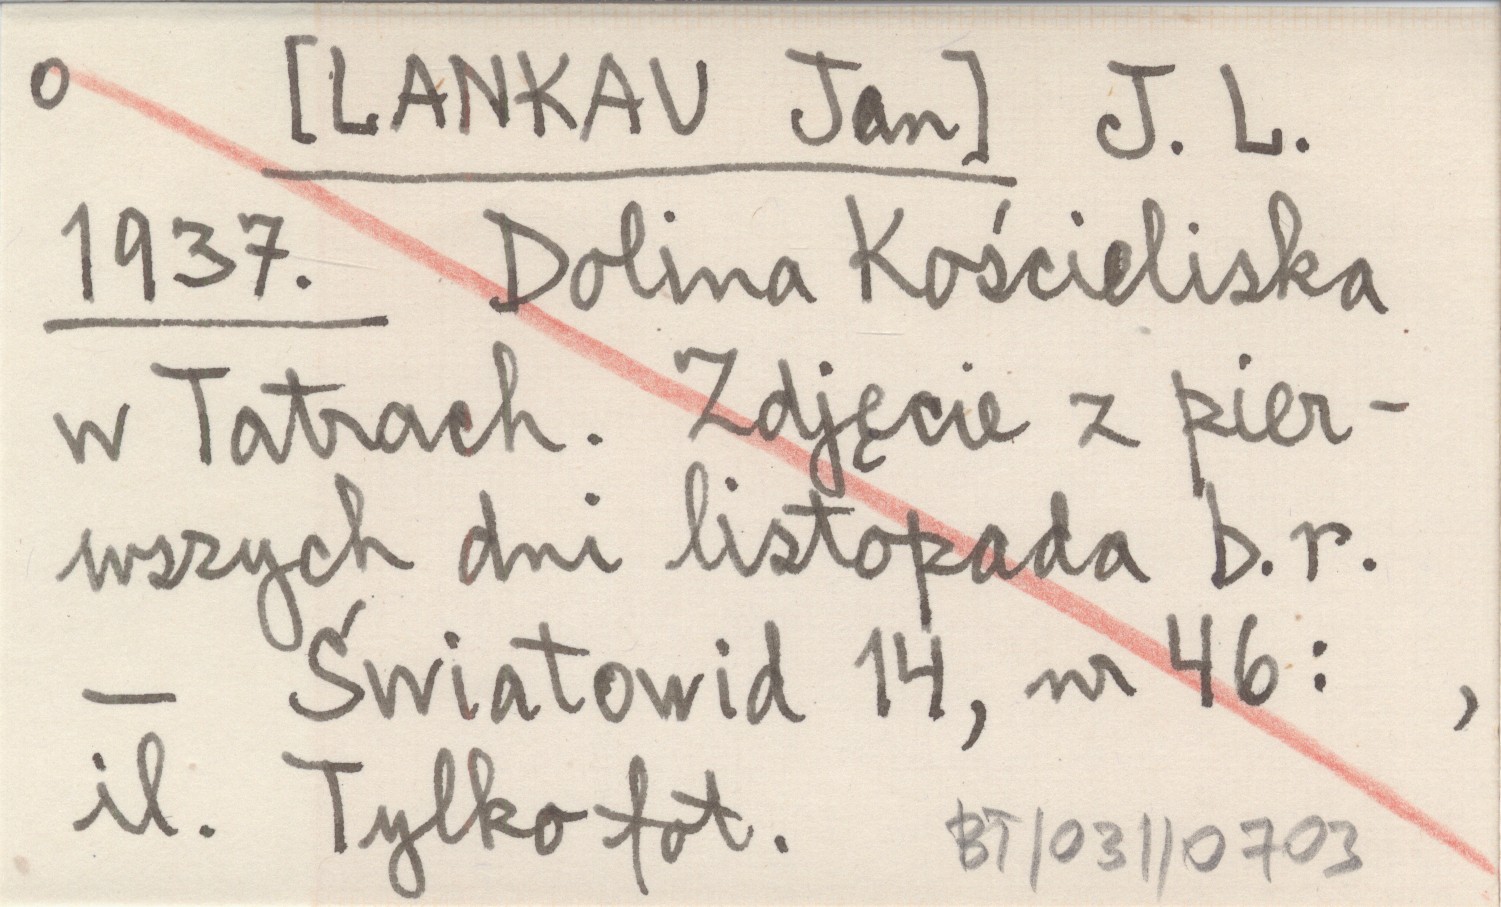 o [LANKAU Jan] J. L.
1937. Dolina Kościeliska
w Tatrach. Zdjęcie z pier-
wszych dni listopada b.r.
— Światowid 14, nr 46: ,
il. Tylko fot.
BT/031//0703